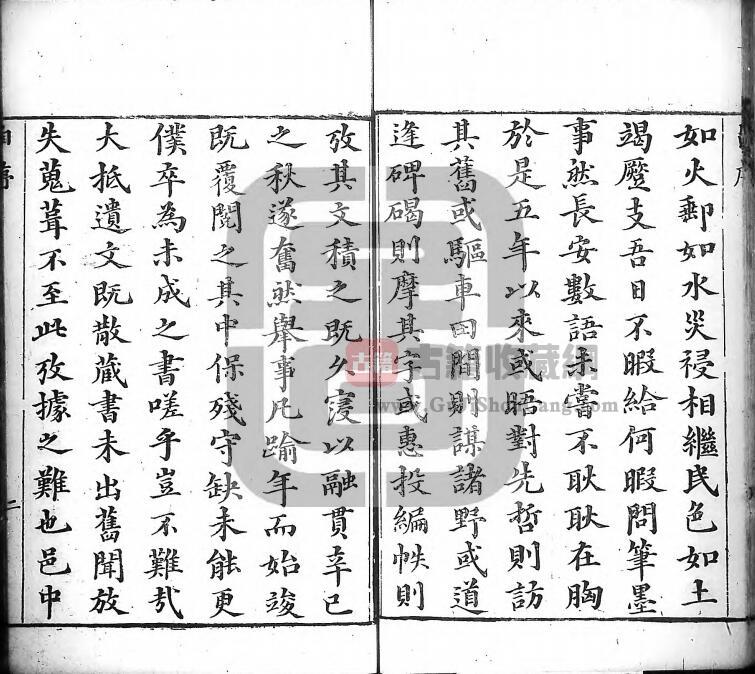 如火郵如水災祲相繼民色如土
竭蹷支吾日不暇給何暇問筆墨
事然長安數語未嘗不耿耿在胸
於是五年以來或晤對先哲則訪
其舊或驅車田間則謀諸野或道
逢碑碣則摩其字或惠投編帙則
攷其文積之既久寖以融貫辛巳
之秋遂奮然舉事凡踰年而始竣
既覆閱之其中保殘守缺未能更
僕卒為未成之書嗟乎豈不難哉
大抵遺文既散藏書未出舊聞放
失蒐葺不至此攷據之難也邑中
自序
二
古籍
古籍收藏網
www.GuJiShouCang.com